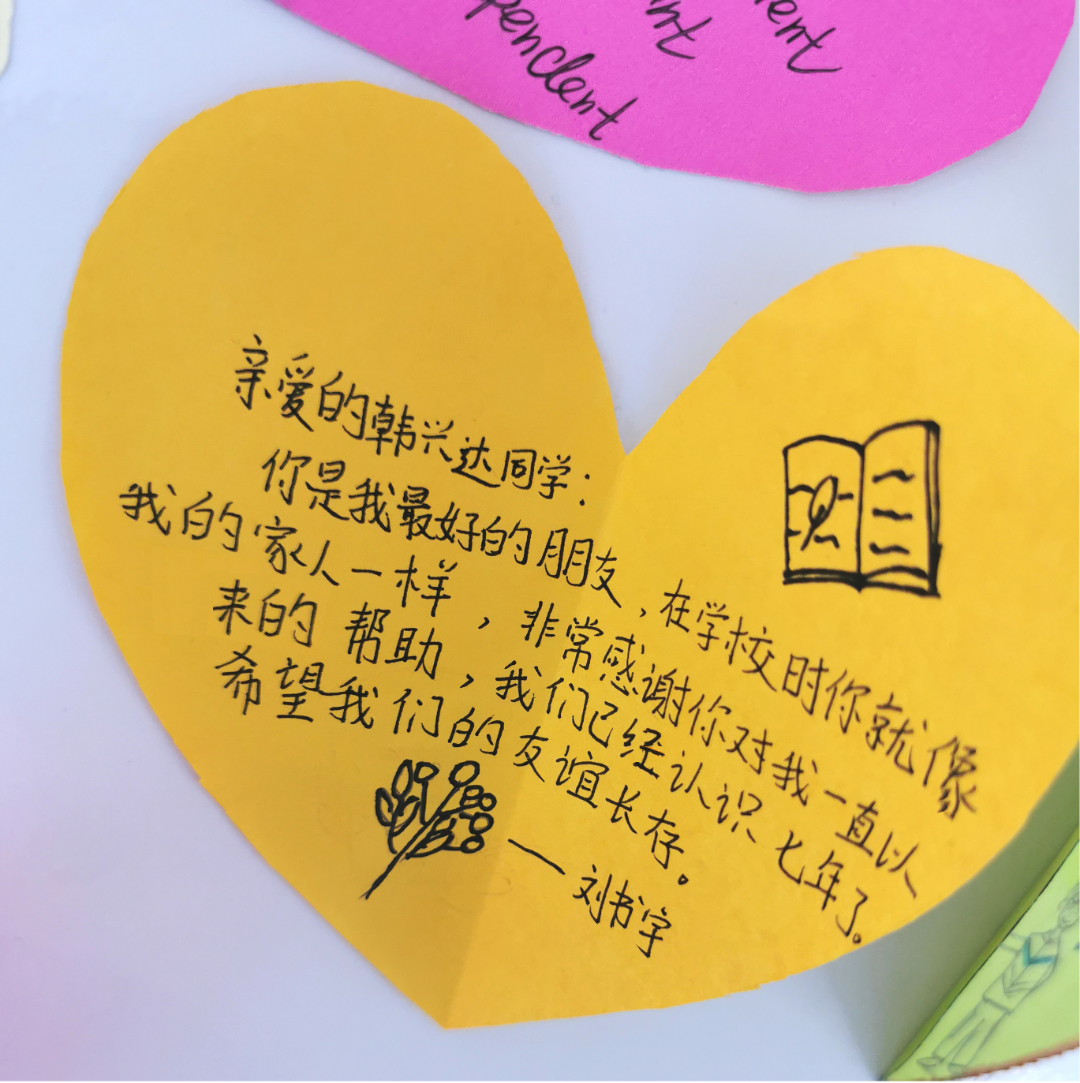 pendent
亲爱的韩兴达同学：
你是我最好的朋友，在学校时你就像
我的家人一样，非常感谢你对我一直以
来的帮助，我们已经认识七年了。
希望我们的友谊长存。
——刘书宇